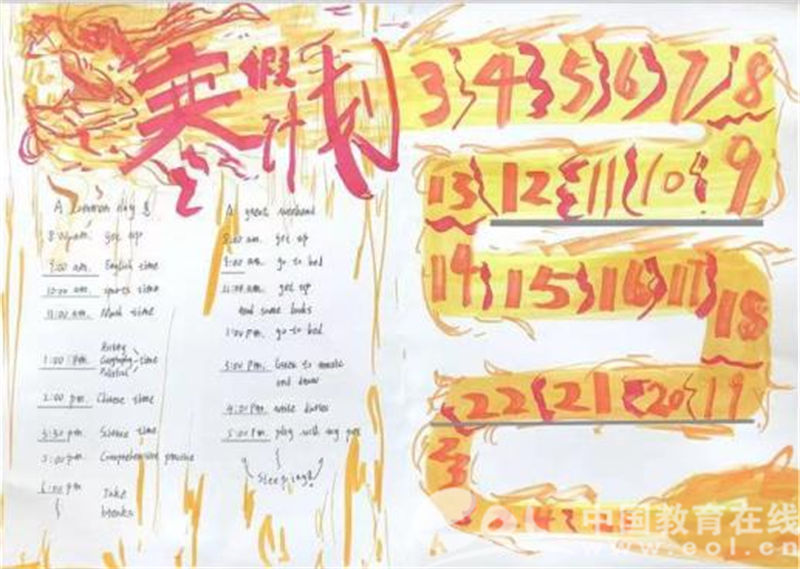 寒假计划
A Common day
8:00 am. get up
9:00 am. English time
10:00 am. sports time
11:00 am. Math time
1:00 pm. History Geography time Political
2:00 pm. Chinese time
3:30 pm. Science time
5:00 pm. Comprehensive practice
6:00 pm Take breaks
A great weekend
8:00 am. get up
9:00 am. go to bed
11:00 am. get up
read some books
1:00 pm. go to bed
3:00 pm. listen to music
and draw
4:00 pm. write diaries
5:00 pm. play with my pet
Sleeping!
3 4 5 6 7 8
13 12 11 10 9
14 15 16 17 18
22 21 20 19
23
中国教育在线
www.eol.cn